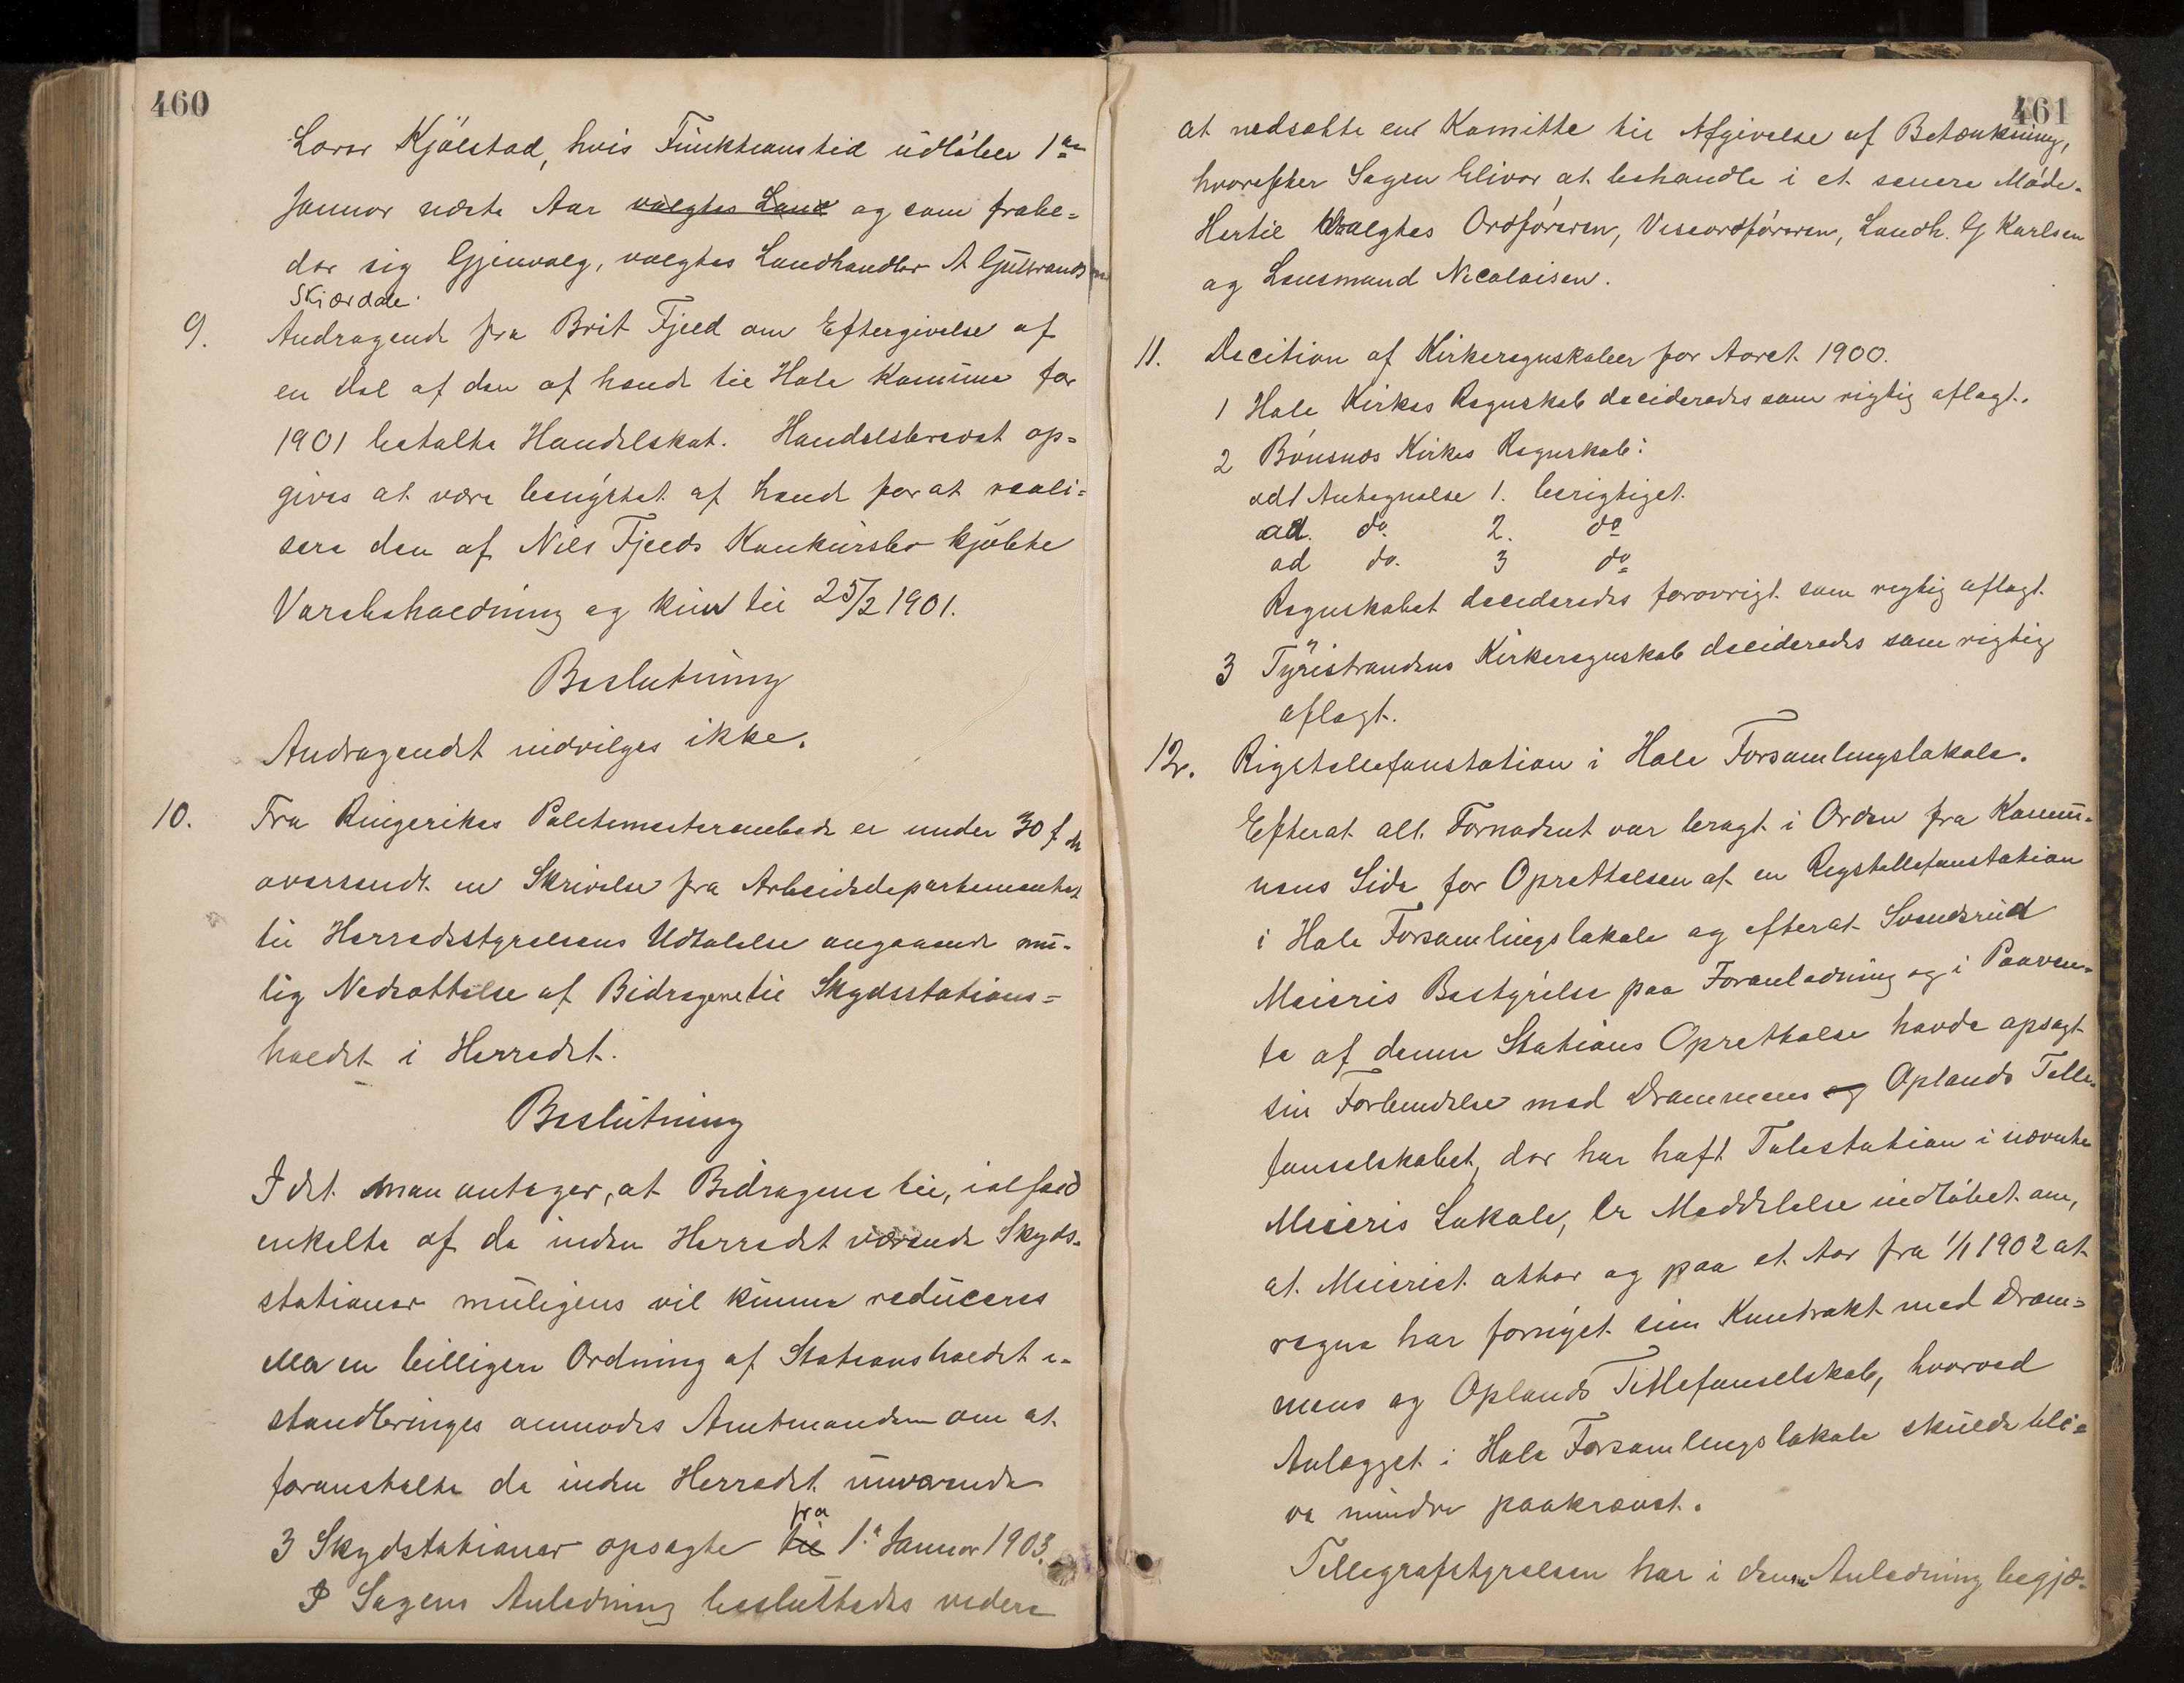 460
Lærer Kjölstad, hvis Funktionstid udlöber 1ste
Januar næste Aar valgtes Land og som frabe=
der sig Gjenvalg, valgtes Landhandler A Gulbrandsen
Skjærdale.
9. Andragende fra Brit Fjeld om Eftergivelse af
en Del af den af hende til Hole Kommune for
1901 betalte Handelskat. Handelsbrevet op=
gives at være benyttet af hende for at reali=
sere den af Nils Fjelds Konkursbo kjöbte
Varebeholdning og kun til 25/2 1901.
Beslutning
Andragendet indvilges ikke.
10. Fra Ringerikes Politimesterembede er under 30 f. M.
oversendt en Skrivelse fra Arbeidsdepartementet
til Herredsstyrelsens Udtalelse angaaende mu-
lig Nedsættelse af Bidragene til Skydsstations=
holdet i Herredet.
Beslutning
I det man antager, at Bidragene til, ialfald
enkelte af de inden Herredet værende Skyds-
stationer muligens vil kunne reduceres
eller en billigere Ordning af Stationsholdet i-
standbringes anmodes Amtmanden om at
foranstalte de inden Herredet nuværende
3 Skydstationer opsagte til fra 1. Januar 1903.
I Sagens Anledning besluttedes videre
461
at nedsætte en Komitte til Afgivelse af Betænkning,
hvorefter Sagen bliver at behandle i et senere Möde.
Hertil valgtes Ordföreren, Viseordföreren, Landh. G Karlsen
og Lensmand Nicolaisen.
11. Decition af Kirkeregnskaber for Aaret 1900.
1 Hole Kirkes Regnskab decideredes som rigtig aflagt.
2 Bönsnes Kirkes Regnskab:
ad 1 Antegnelse 1. berigtiget.
ad. do. 2. do
ad do. 3 do
Regnskabet decideredes forøvrigt som rigtig aflagt.
3 Tyristrandens Kirkeregnskab decideredes som rigtig
aflagt.
12. Rigstellefonstation i Hole Forsamlingslokale.
Efterat alt Fornødent var bragt i Orden fra Kommu-
nens Side for Oprettelsen af en Rigstellefonstation
i Hole Forsamlingslokale og efterat Svendsrud
Meieris Bestyrelse paa Foranledning og i Paaven-
te af denne Stations Oprettelse havde opsagt
sin Forbindelse med Drammens og Oplands Telle-
fonselskabet, der har haft Talestation i nævnte
Meieris Lokale, er Meddelelse indlöbet om,
at Meieriet atter og paa et Aar fra 1/1 1902 at
regne har fornyet sin Kontrakt med Dram=
mens og Oplands Tellefonselskab, hvorved
Anlægget i Hole Forsamlingslokale skulde bli=
ve mindre paakrævet.
Tellegrafstyrelsen har i denne Anledning begjæ-